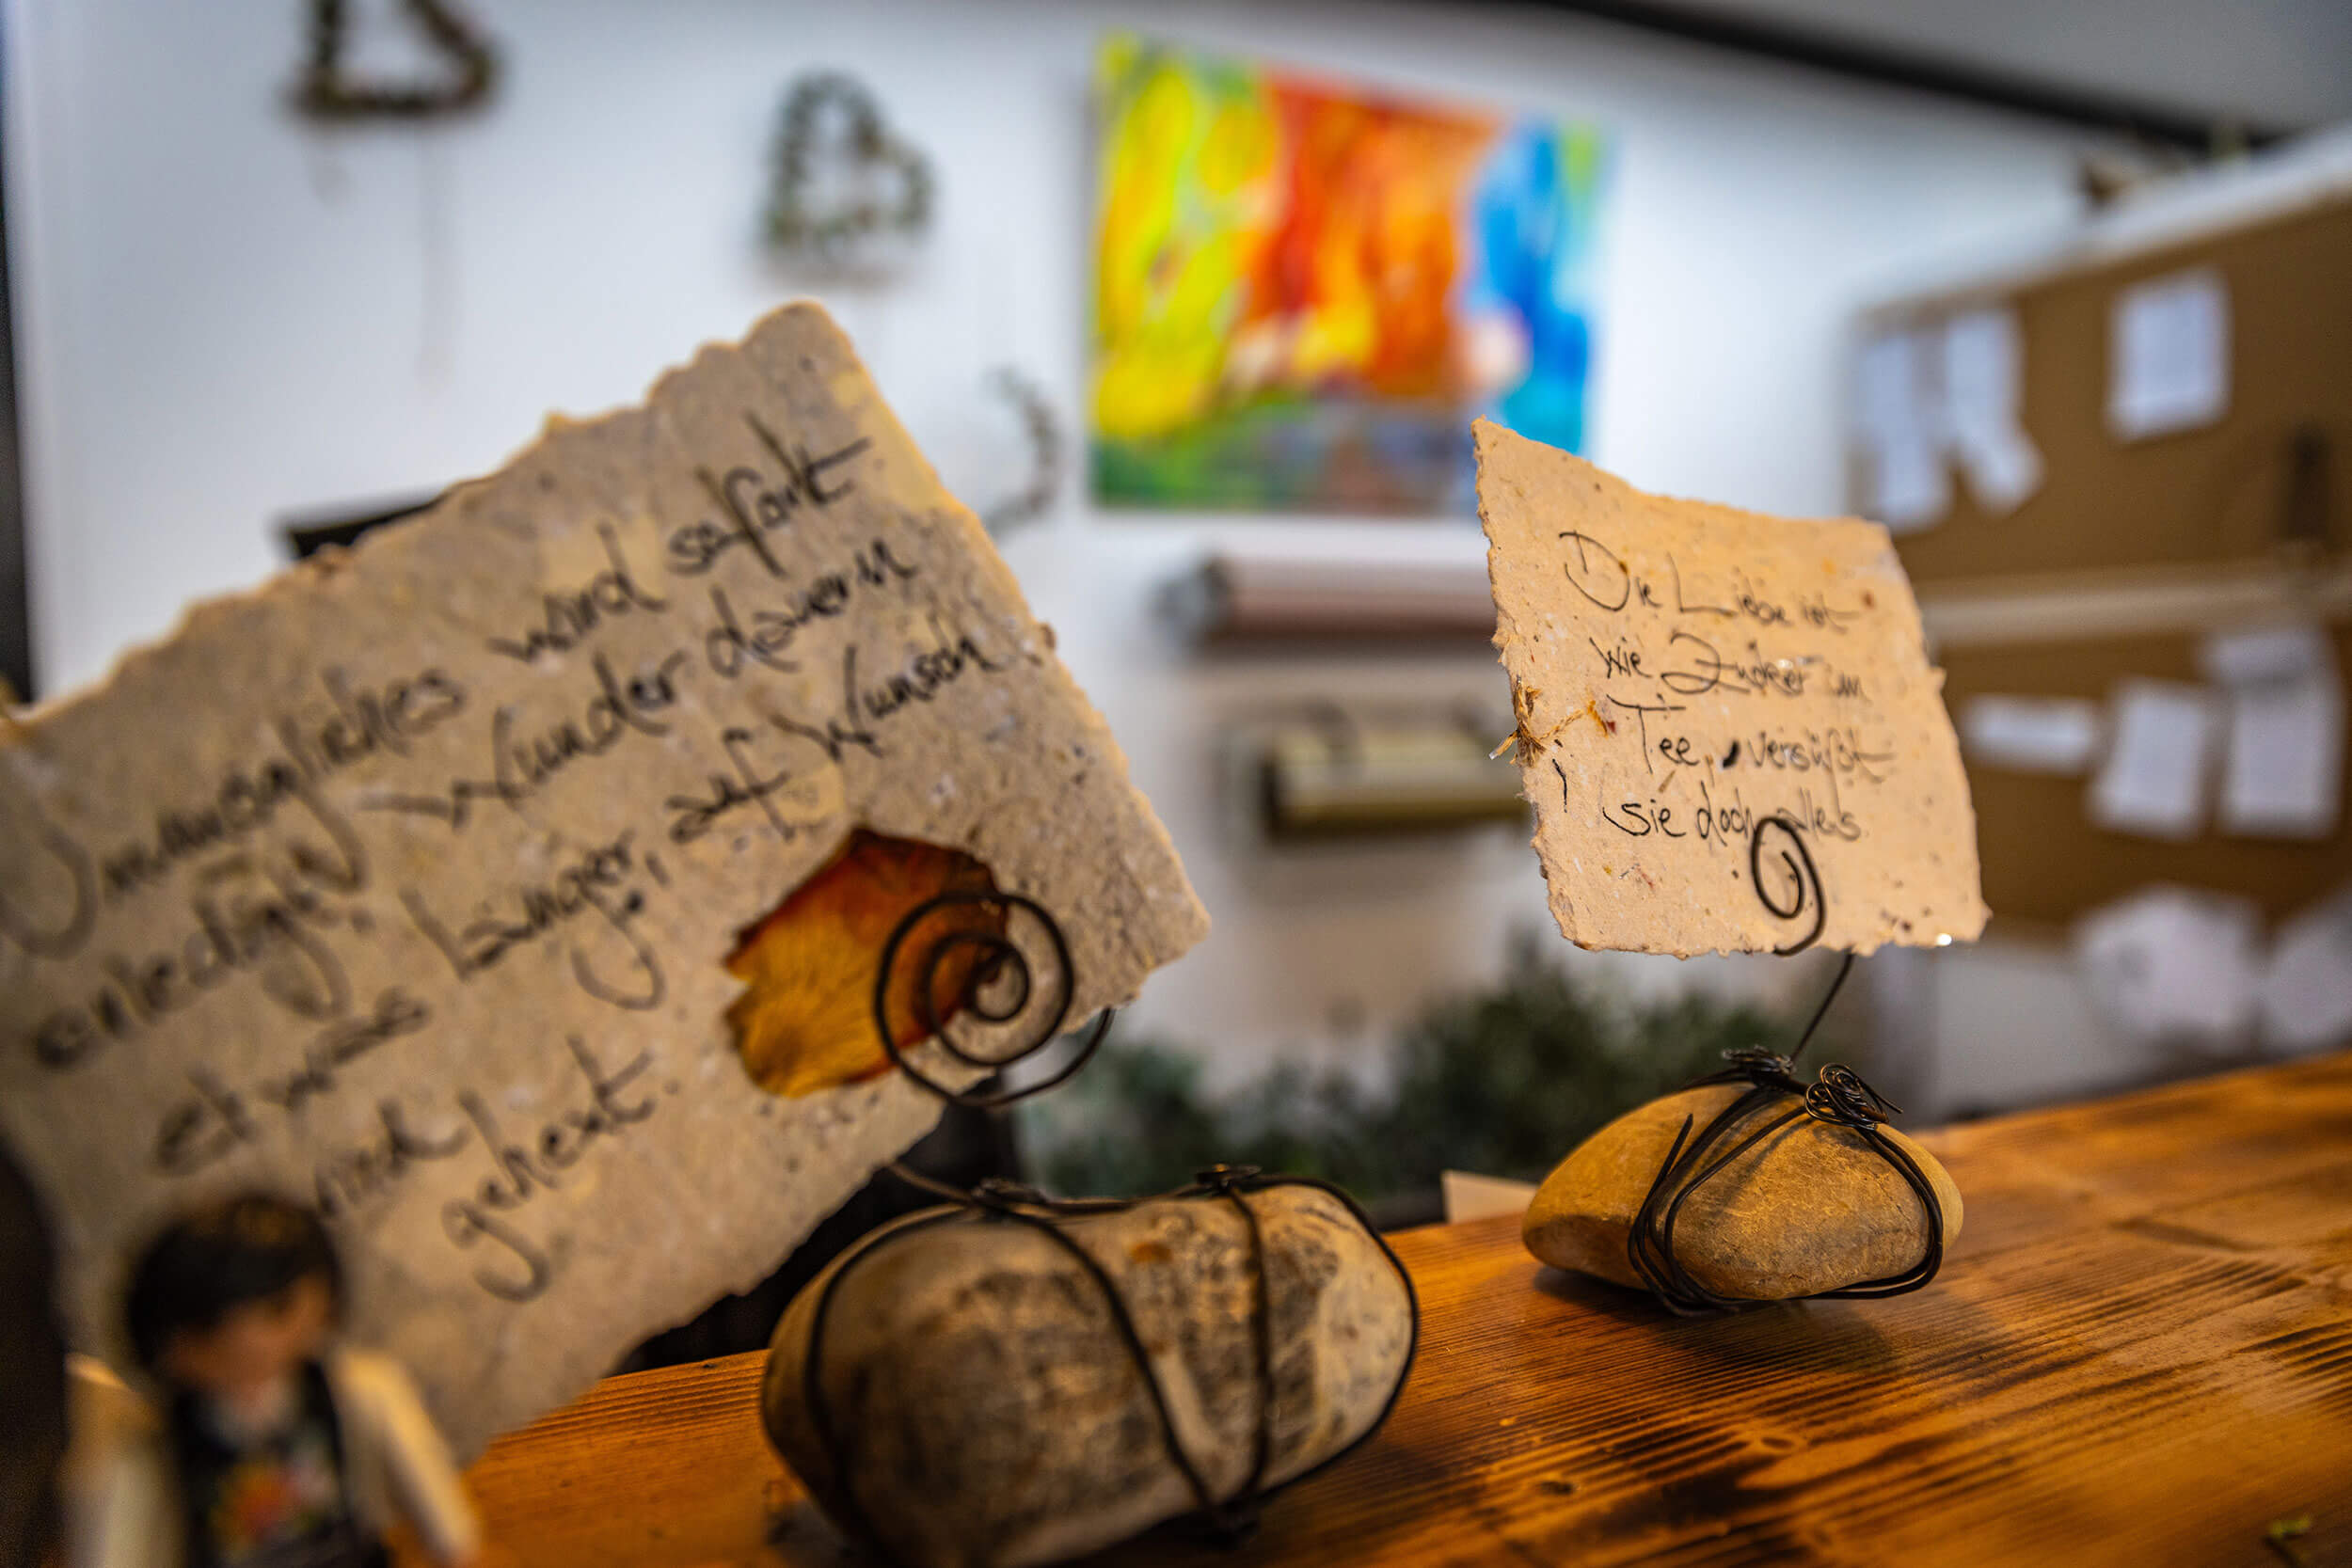 Unmögliches wird sofort
erledigt, Wunder dauern
etwas länger, auf Wunsch
wird
gehext.
Die Liebe ist
wie Zucker im
Tee, versüßt
sie doch alles.